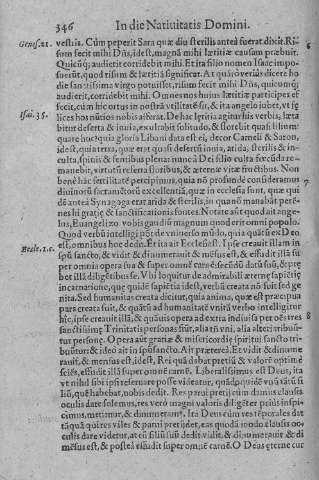 346 In die Natiuitatis Domini.
Genes. 21. vestris. Cùm peperit Sara quæ diu sterilis anteà fuerat dixit, Ri-
sum fecit mihi Dñs, idest, magnã mihi lætitiæ causam præbuit.
Quicũq; audierit corridebit mihi. Et ita filio nomen Isaac impo-
suerũt, quod risum & lætitiã significat. At quãtò veriùs dicere ho
die sanctissima virgo potuisset, risum fecit mihi Dñs, quicunq;
audierit, corridebit mihi. Omnes nos huius lætitiæ participes ef
fecit, cùm hic ortus in nostrã vtilitatẽ sit, & ita angelo iubet, vt hos
Isai. 35. lices hos nũtios nobis afferat. De hac lætitia agitur his verbis, læta
bitur deserta & inuia, exultabit solitudo, & florebit quasi lilium:
quare hoc? quia gloria Libani data est ei, decor Carmeli & Saron,
idest, quia terra, quæ erat quasi deserta inuia, arida, sterilis & in-
culta, spinis & sentibus plena: nunc à Dei filio culta fœcũda re-
manebit, virtutũ reserta floribus, & æternæ vitæ fructibus. Non
bene hãc fertilitatẽ percipimus, quia nõ profundè consideramus
diuinorũ sacramẽtorũ excellentiã, quæ in ecclesia sunt, quæ qui
dẽ anteà Synagoga erat arida & sterilis, in quanõ manabãt peren
nes hi gratiæ & sanctificationis fontes. Notate aũt quod ait ange-
lus, Euangelizo vobis gaudiũ magnum quod erit omni populo.
Quod verbũ intelligi põt de vniuerso mũdo, quia quãtũ ex Deo
Eccle. 1.c. est, omnibus hoc dedit. Et ita ait Ecclesiast. Ipse creauit illam in
spũ sancto, & vidit & dinumerauit & mẽsus est, & effudit illã su
per omnia opera sua & super omnẽ carnẽ secũdũ datũ suũ, & præ
bet illã diligẽtibus se. Vbi loquitur de admirabili æternæ sapiẽtiæ
incarnatione, quæ quidẽ sapiẽtia idest, verbũ creata nõ fuit sed ge
nita. Sed humanitas creata dicitur, quia anima, quæ est præcipua
pars creata fuit, & quãtũ ad humanitatẽ vnitã verbo intelligitur
hic, ipse creauit illã, & quãuis opera ad extra indiuisa per oẽs tres
sanctissimę Trinitatis personas siut, alia tñ vni, alia alteri tribuũ-
tur personę. Opera aũt gratiæ & misericordię spiritui sancto tri-
buũtur: & ideò ait in spũ sancto. Ait præterea, Et vidit & dinume
rauit, & mensus est, idest, Rei quã dabat pretiũ & valorẽ optimè
sciẽs, effudit illã super omnẽ carnẽ. Liberalissimus est Deus, ita
vt nihil sibi ipsi reseruare posse videatur, quãdoquidẽ vnũ tãtũ fi
liũ, quẽ habebat, nobis dedit. Res parui pretij cùm damus clausis
oculis dare solemus, res verò magni valoris diligẽter priùs inspi-
cimus, metimur, & dinumeram⁹. Ita Deus cùm res tẽporales dat
tãquã qui res viles & parui pretij det, eas quodã modo clausis oc-
culis dare videtur, at cũ filiũ suũ dedit vidit, & dinumerauit & di
mẽsus est, & posteà effudit super omnẽ carnẽ. O Deus æterne cur